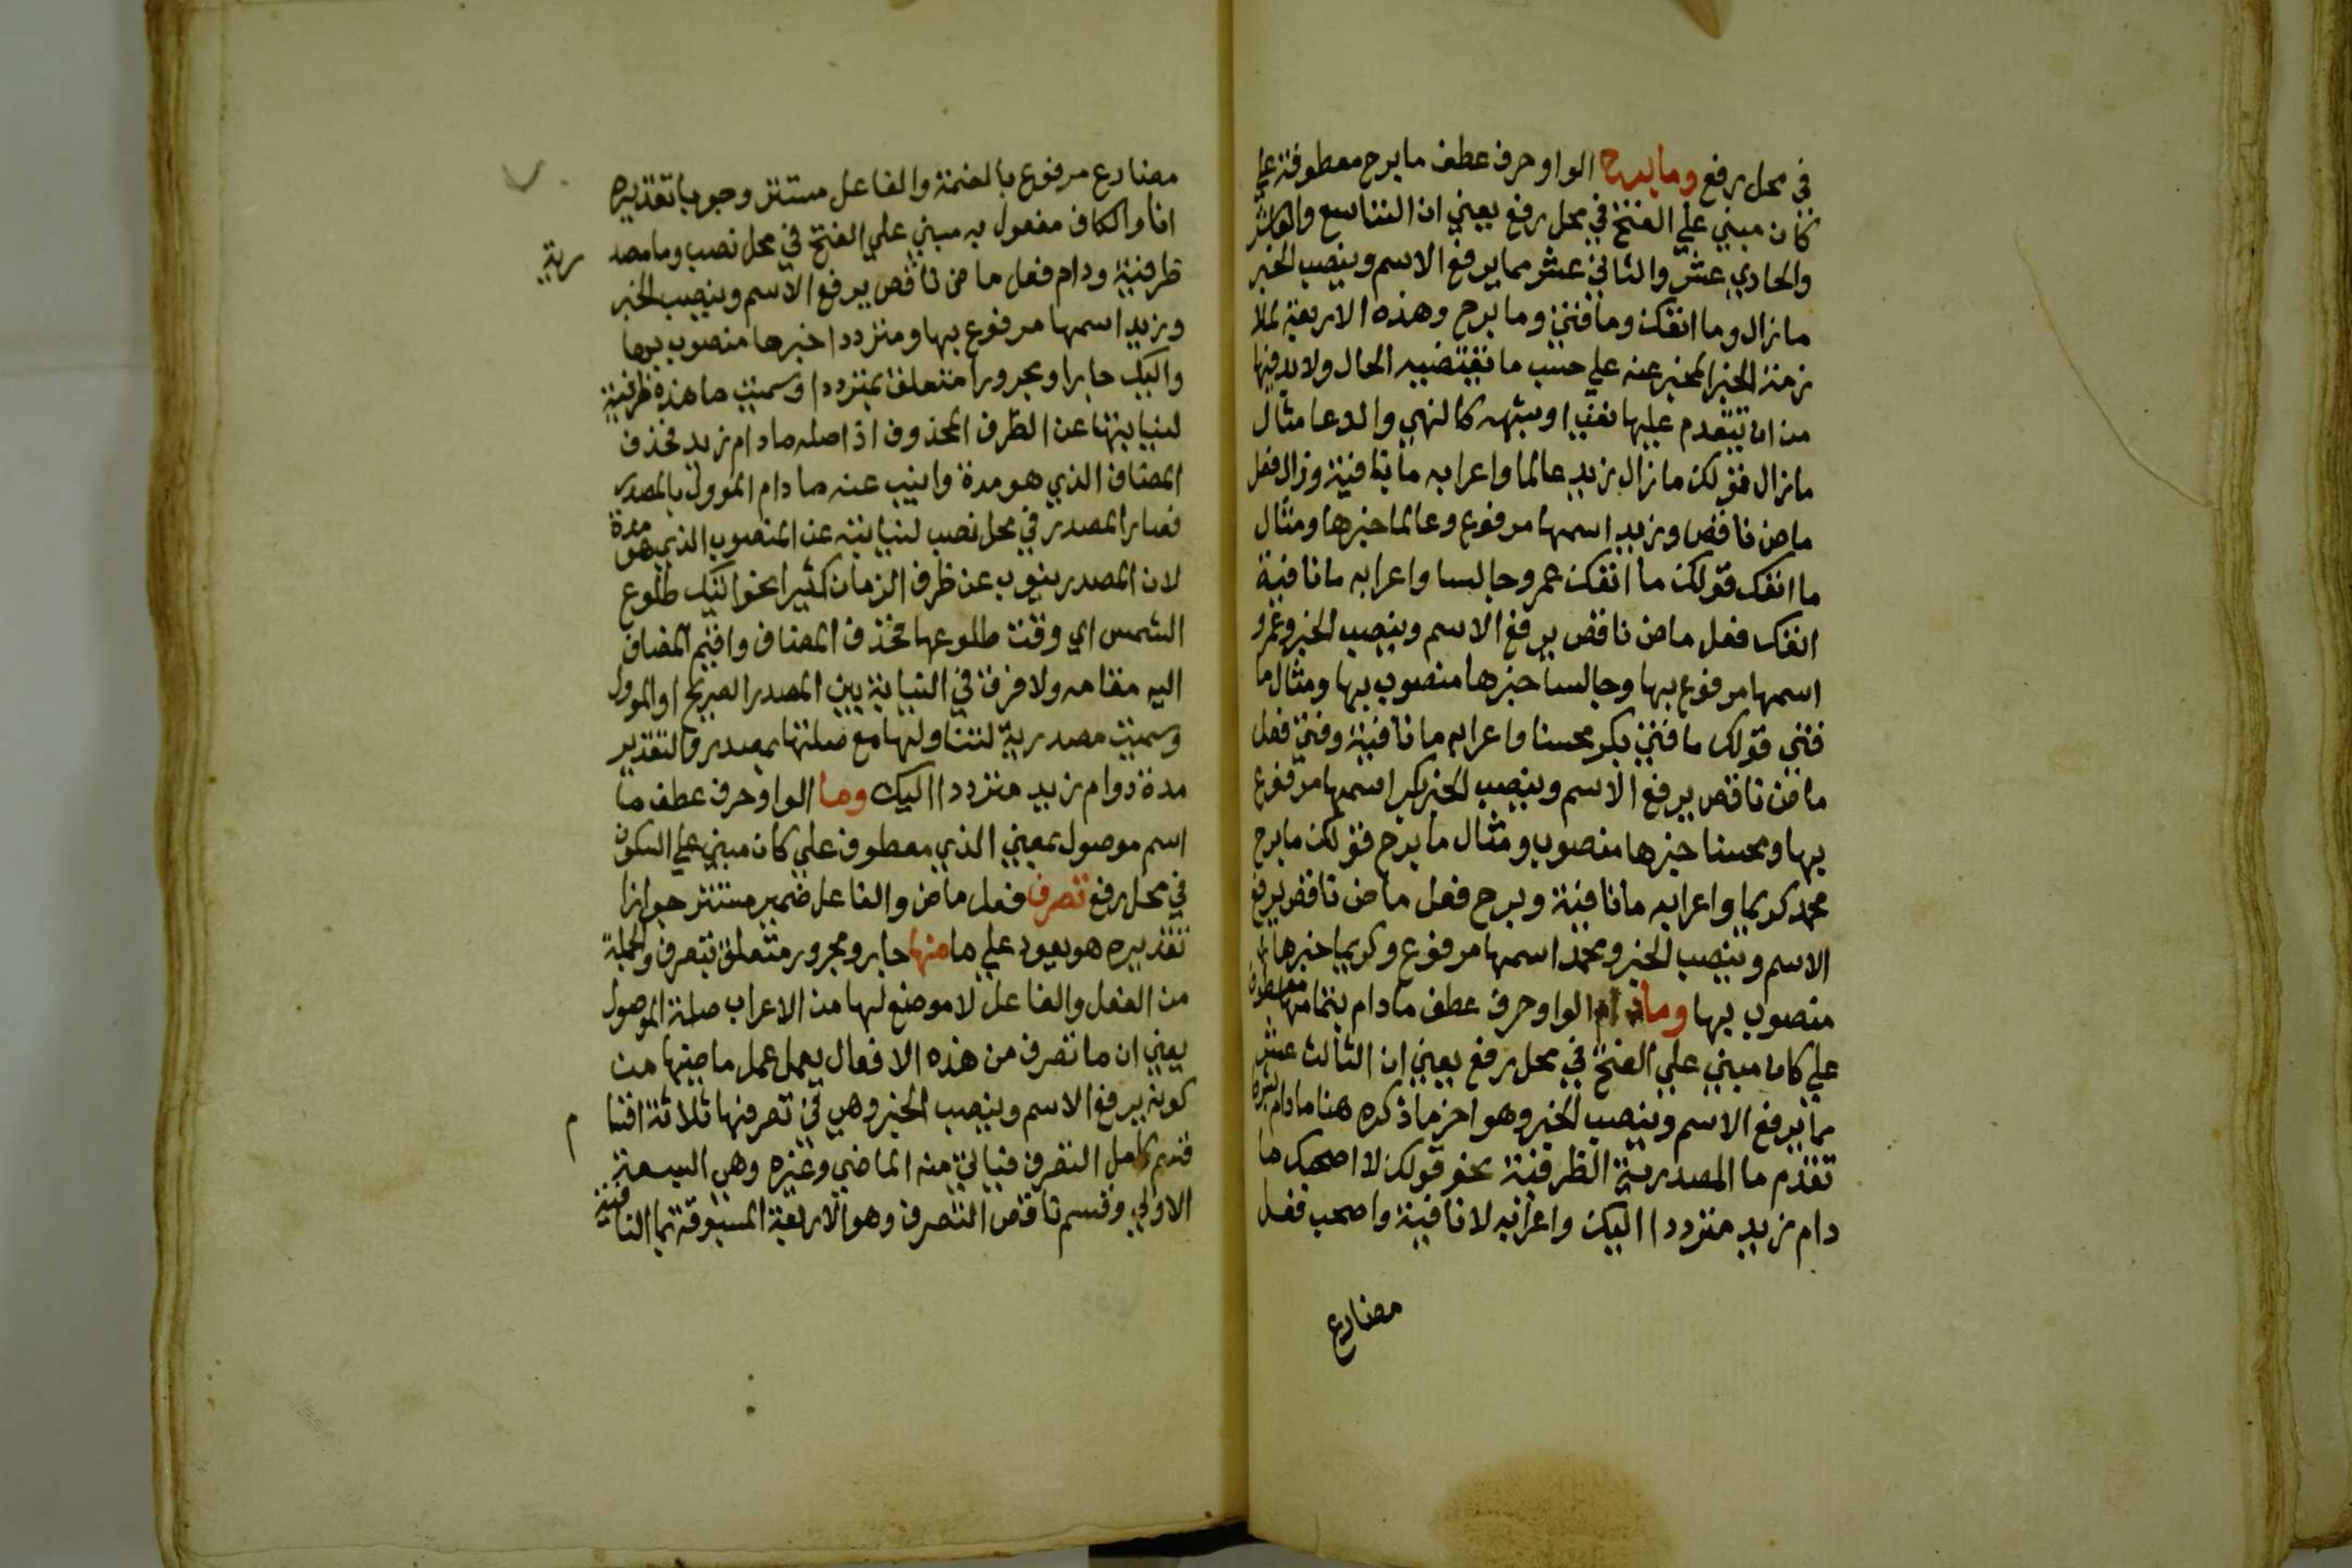 في محل رفع وما برح الواو حرف عطف ما برح معطوفة علي
كان مبني علي الفتح في محل رفع يعني ان التاسع والعاشر
والحادي عشر والثاني عشر مما يرفع الاسم وينصب الخبر
ما زال وما انفك وما فتئ وما برح وهذه الاربعة لملا
زمة الخبر المخبر عنه علي حسب ما تقتضيه الحال ولا بد فيها
من ان يتقدم عليها نفي او شبهه كالنهي والدعا مثال
ما زال قولك ما زال زيد عالما واعرابه ما نافية وزال فعل
ماض ناقص وزيد اسمها مرفوع وعالما خبرها ومثال
ما انفك قولك ما انفك عمرو جالسا واعرابه ما نافية
انفك فعل ماض ناقص يرفع الاسم وينصب الخبر وعمرو
اسمها مرفوع بها وجالسا خبرها منصوب بها ومثال ما
فتئ قولك ما فتئ بكر محسنا واعرابه ما نافية وفتئ فعل
ماض ناقص يرفع الاسم وينصب الخبر بكر اسمها مرفوع
بها ومحسنا خبرها منصوب ومثال ما برح قولك ما برح
محمد كريما واعرابه ما نافية وبرح فعل ماض ناقص يرفع
الاسم وينصب الخبر ومحمد اسمها مرفوع وكريما خبرها
منصوب بها وما دام الواو حرف عطف ما دام بتمامها معطوف
علي كان مبني علي الفتح في محل رفع يعني ان الثالث عشر
مما يرفع الاسم وينصب الخبر وهو اخر ما ذكره هنا ما دام بشرط
تقدم ما المصدرية الظرفية نحو قولك لا اصحبك ما
دام زيد مترددا اليك واعرابه لا نافية واصحب فعل
مضارع
مضارع مرفوع بالضمة والفاعل مستتر وجوبا تقديره
انا والكاف مفعول به مبني علي الفتح في محل نصب وما مصدرية
ظرفية ودام فعل ماض ناقص يرفع الاسم وينصب الخبر
وزيد اسمها مرفوع بها ومترددا خبرها منصوب بها
واليك جارا ومجرورا متعلق بمترددا وسميت ما هذه ظرفية
لنيابتها عن الظرف المحذوف اذ اصله ما دام زيد فحذف
المضاف الذي هو مدة وانيب عنه ما دام المؤول بالمصدر
فصار المصدر في محل نصب لنيابته عن المنصوب الذي هو مدة
لان المصدر ينوب عن ظرف الزمان كثيرا نحو اتيك طلوع
الشمس اي وقت طلوعها فحذف المضاف واقيم المضاف
اليه مقامه ولا فرق في النيابة بين المصدر الصريح او المؤول
وسميت مصدرية لتناولها مع صلتها بمصدر والتقدير
مدة دوام زيد مترددا اليك وما الواو حرف عطف ما
اسم موصول بمعني الذي معطوف علي كان مبني علي السكون
في محل رفع تصرف فعل ماض والفاعل ضمير مستتر جوازا
تقديره هو يعود علي ما منها جار ومجرور متعلق بتصرف والجملة
من الفعل والفاعل لا موضع لها من الاعراب صلة الموصول
يعني ان ما تصرف من هذه الافعال يعمل عمل ماضيها من
كونه يرفع الاسم وينصب الخبر وهي في تصرفها ثلاثة اقسام
قسم كامل التصرف فياتي منه الماضي وغيره وهي السبعة
الاولي وقسم ناقص التصرف وهو الاربعة المسبوقة بما النافية